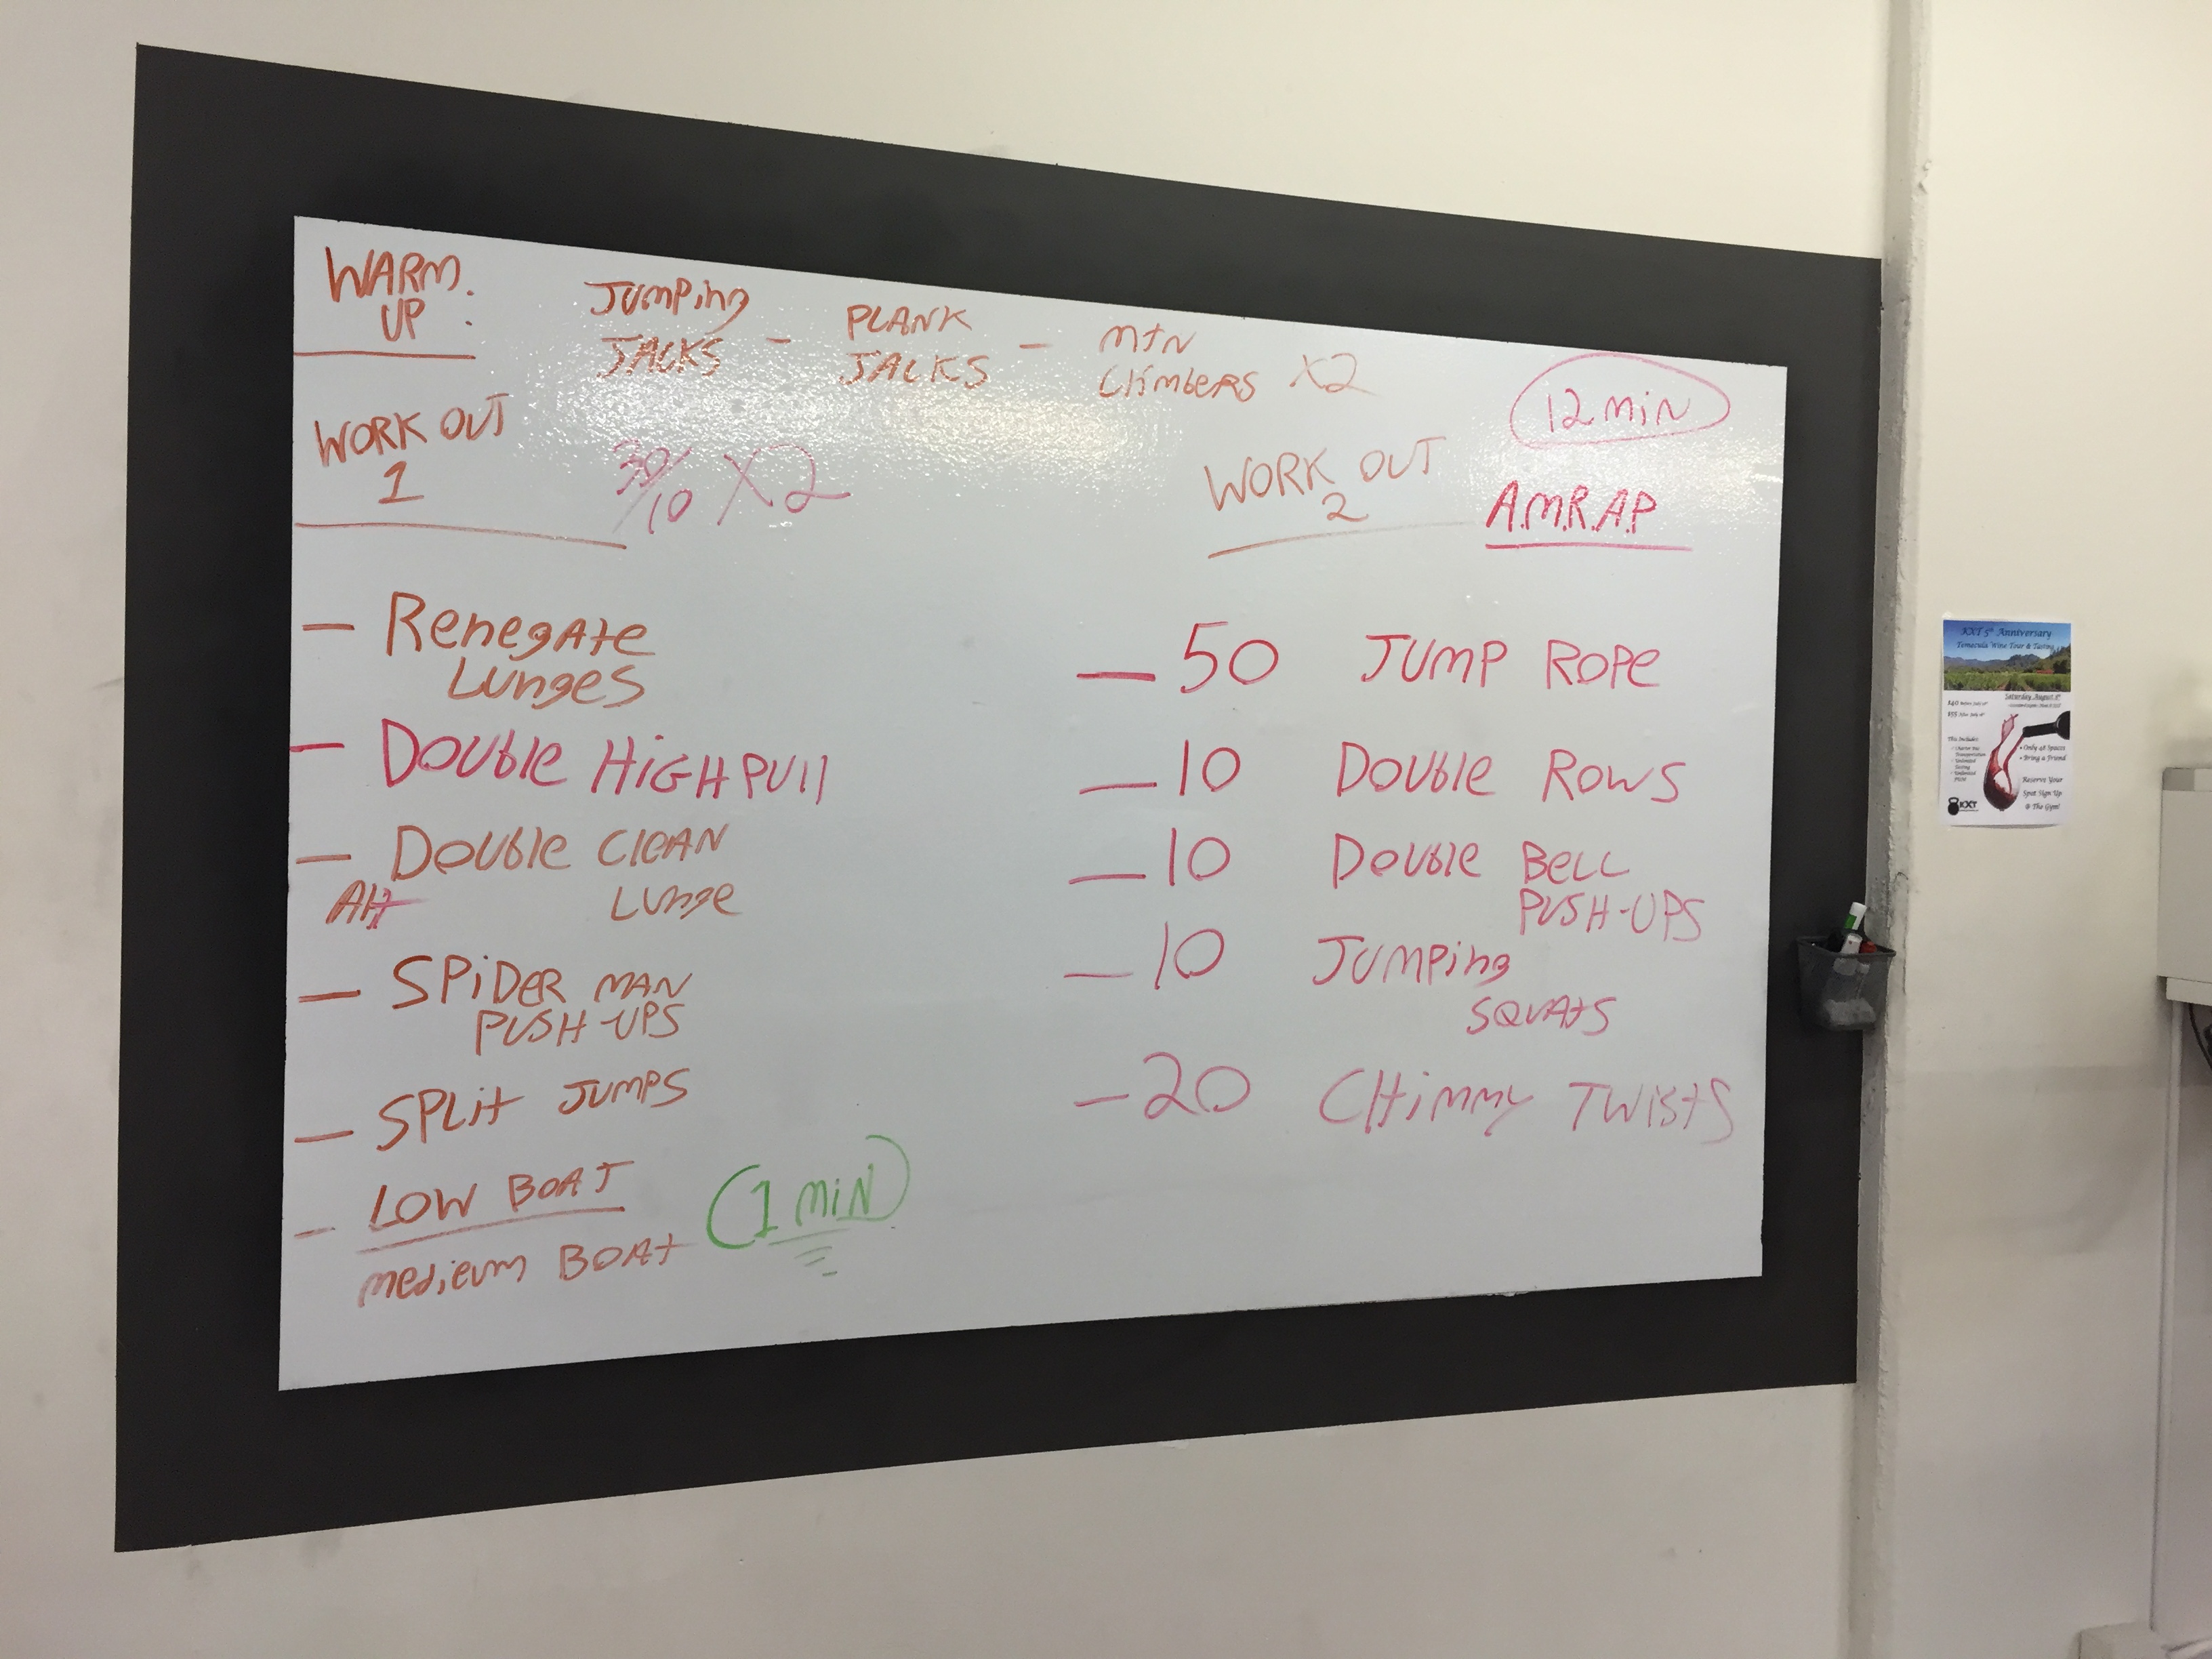 WARM.
UP :
JUMPing
JACKS - PLANK
JACKS - MtN
ClimbeRS X2
WORK OUT
1
30/10 X2
— RenegAte
LUngeS
— DOUble HiGH PUll
— DOUble CleAN
Alt LUnge
— SPiDeR MAN
PUSH-UPS
— SPLit JUMPS
— LOW BOAT
MeDieUm BOAt
(1 MiN)
12 MiN
WORK OUT
2
A.M.R.A.P
— 50 JUMP ROPe
— 10 DOUble ROWS
— 10 DOUble BeLL
PUSH-UPS
— 10 JUMPing
SQUAtS
— 20 CHimmy TWistS
KXT 5th Anniversary
Temecula Wine Tour & Tasting
Saturday August 8th
$40 Before July 18th
$55 After July 18th
This Includes
Charter Bus
Transportation
Unlimited
Tasting
Unlimited
• Only 48 Spaces
• Bring a Friend
Reserve Your
Spot Sign Up
@ The Gym!
KXT